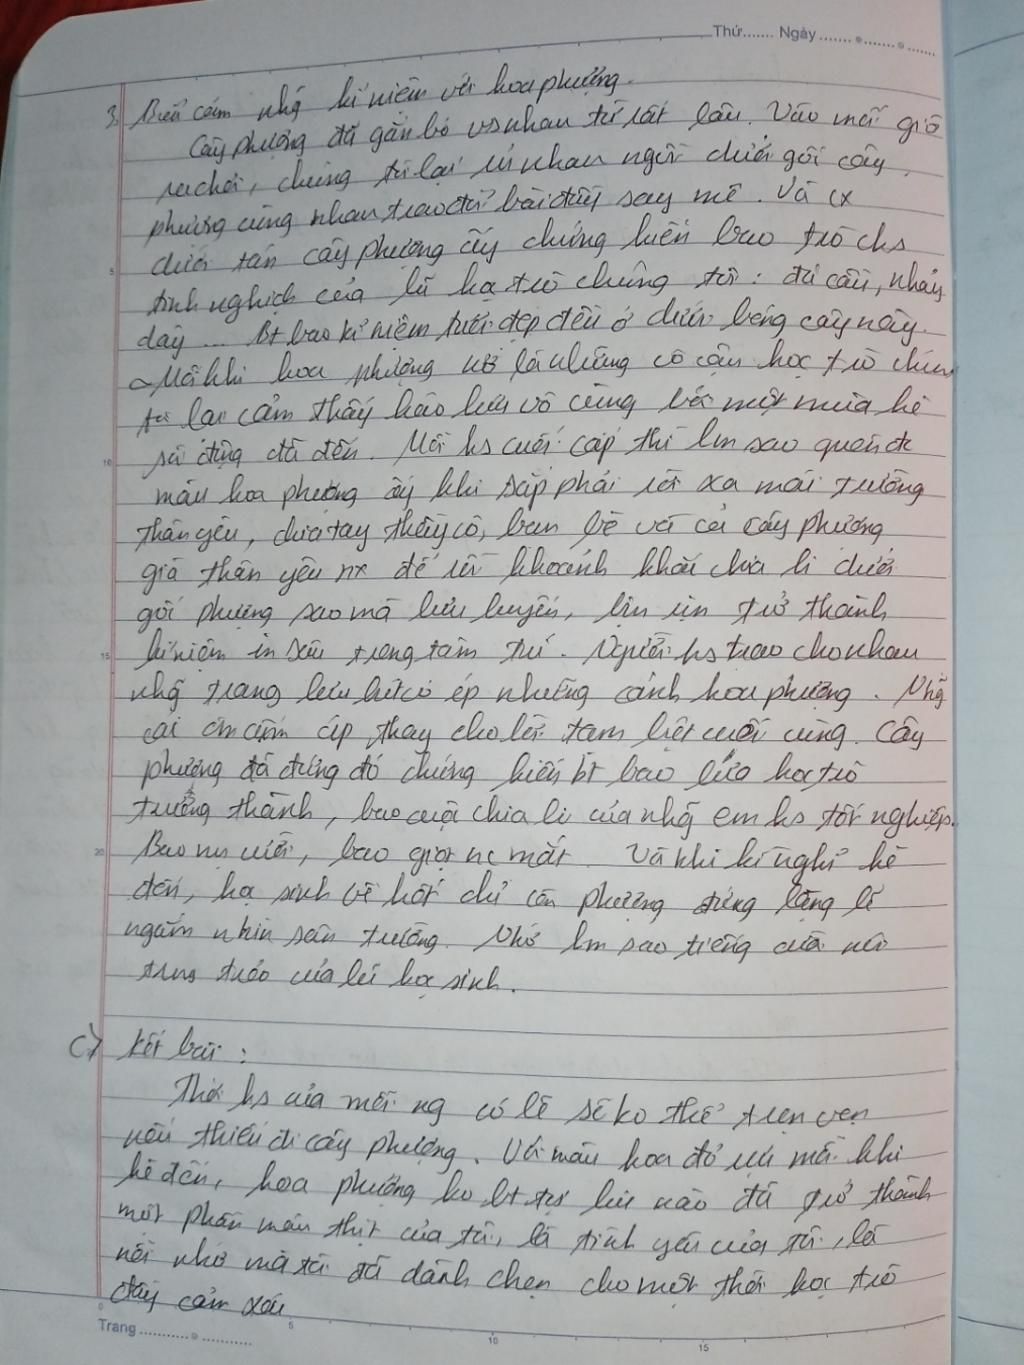 Thứ....... Ngày.......
3. Biểu cảm nhg kỉ niệm với hoa phượng.
Cây phượng đã gắn bó vs nhau từ rất lâu. Vào mỗi giờ
ra chơi, chúng tôi lại rủ nhau ngồi dưới gốc cây
phượng cùng nhau trao đổi bài đầy say mê. Và cx
dưới tán cây phượng ấy chứng kiến bao trò chs
tinh nghịch của lũ học trò chúng tôi: đá cầu, nhảy
dây ... Bt bao kỉ niệm tươi đẹp đều ở dưới bóng cây này.
Mỗi khi hoa phượng nở là những cô cậu học trò chúng
tôi lại cảm thấy háo hức vô cùng bởi một mùa hè
sôi động đã đến. Mỗi hs cuối cấp thì lm sao quên đc
màu hoa phượng ấy khi sắp phải rời xa mái trường
thân yêu, chia tay thầy cô, bạn bè và cả cây phượng
già thân yêu nx để rồi khoảnh khắc chia li dưới
gốc phượng sao mà lưu luyến, bịn rịn trở thành
kỉ niệm in sâu trong tâm trí. Người hs trao cho nhau
nhg trang lưu bút có ép những cánh hoa phượng. Nhg
cái ôm ấm áp thay cho lời tạm biệt cuối cùng. Cây
phượng đã đứng đó chứng kiến bt bao lứa học trò
trưởng thành, bao cuộc chia li của nhg em hs tốt nghiệp.
Bao nụ cười, bao giọt nc mắt. Và khi kì nghỉ hè
đến, học sinh về hết chỉ còn phượng đứng lặng lẽ
ngắm nhìn sân trường. Nhớ lm sao tiếng cười nói
trong trẻo của lũ học sinh.
c) Kết bài:
Thời hs của mỗi ng có lẽ sẽ ko thể trọn vẹn
nếu thiếu đi cây phượng. Với màu hoa đỏ rực mỗi khi
hè đến, hoa phượng ko bt tự lúc nào đã trở thành
một phần máu thịt của tôi, là tình yêu của tôi, là
nỗi nhớ mà tôi đã dành chọn cho một thời học trò
đầy cảm xúc
Trang...........